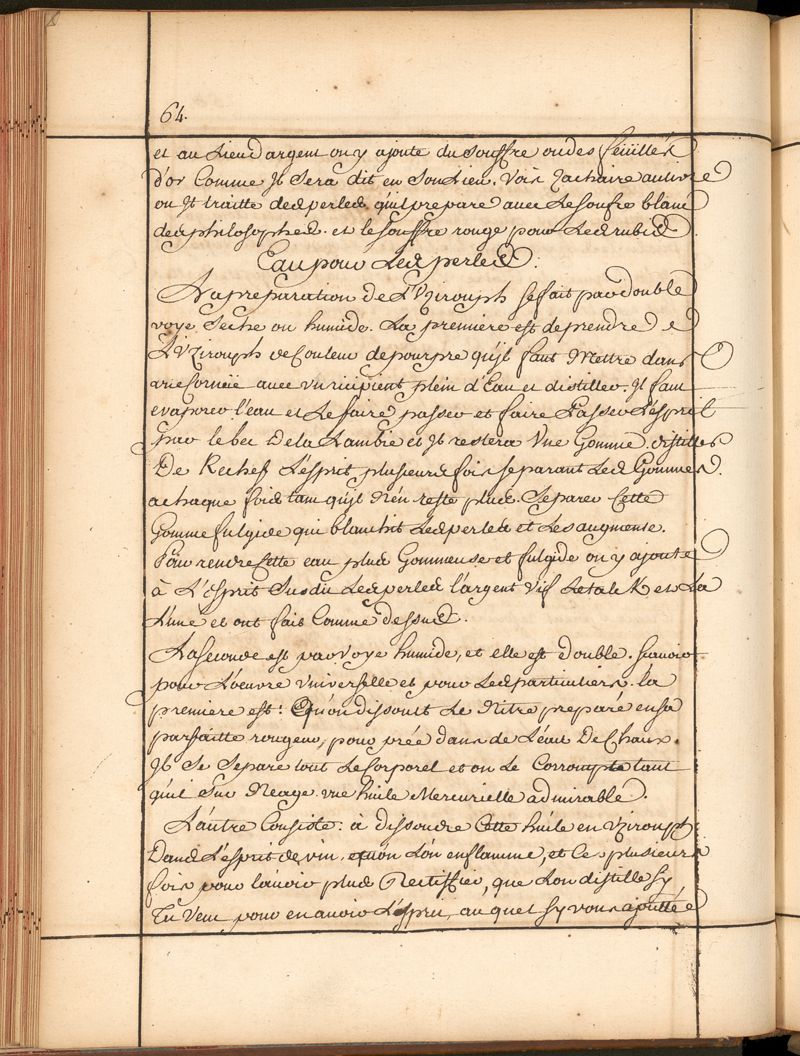 64.
et au Lieu d'argent on y ajoute du Souffre ou des feüilles
d'or Comme Jl Sera dit en Son Lieu. Voir Zachaire au livre
ou Jl traitte des perles qu'il prepare avec Le Soufre blanc
des philosophes. et le Souffre rouge pour Les rubis
Eau pour Les perles.
La preparation de L'Vzirouph se fait par double
voye Seche ou humide. La premiere est de prendre
L'Vzirouph de Couleur de pourpre qu'il faut Mettre dans
avec vn ricipient plein d'Eau et distiller. Jl faut
evaporer l'eau et Le faire passer et faire Passer L'esprit
par le bec De la Lambic et Jl restera Vne Gomme. distiller
De Rechef L'esprit plusieurs fois separant Les Gommes
a chaque fois tant qu'il N'en reste plus. Separer Cette
Gomme fulgide qui blanchit Les perles et Les augmente.
Pour rendre Cette eau plus Gommeuse et fulgide on y ajoute
à L'esprit Susdit Les perles l'argent Vif Le talck et La
Lune et ont fait Comme dessus.
La Seconde est par voye humide, et elle est double. Scavoir
pour L'oeuvre Vniverselle et pour Les particuliers. la
premiere est: Qu'on dissoult Le Nitre preparé en sa
parfaitte rougeur, pourprée dans de L'eau De Chaux.
Jl Se Separe tout Le Corporel et on Le Corrompte tant
qu'il Sur Nage vne huile Mercurielle admirable.
L'autre Consiste: à dissoudre Cette huile en Vzirouph
Dans L'esprit de vin. qu'on L'on enflamme, et Ce plusieurs
fois pour l'avoir plus Rectiffier, que L'on distille Sy
Tu Veux pour en avoir L'esprit, au quel Sy vous ajouttée